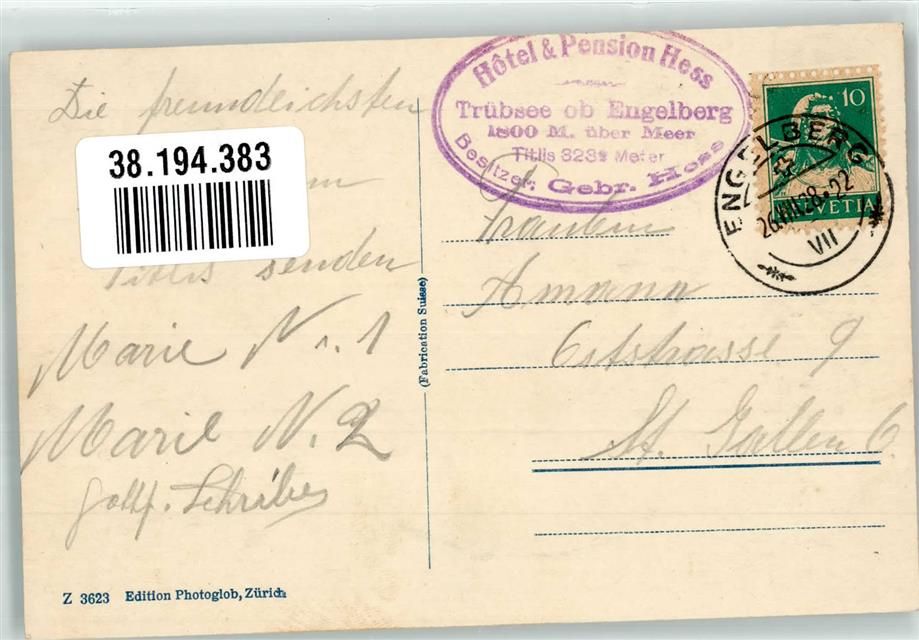 Die freundlichsten
38.194.383
Titlis senden
Marie N. 1
Marie N. 2
Gottf. Schribe
Z 3623 Edition Photoglob, Zürich
(Fabrication Suisse)
Hôtel & Pension Hess
Trübsee ob Engelberg
1800 M. über Meer
Titlis 3239 Meter
Besitzer: Gebr. Hess
10
HELVETIA
ENGELBERG
26.VIII.28-22
VII
Fräulein
Amann
Oststrasse 9
St. Gallen C.